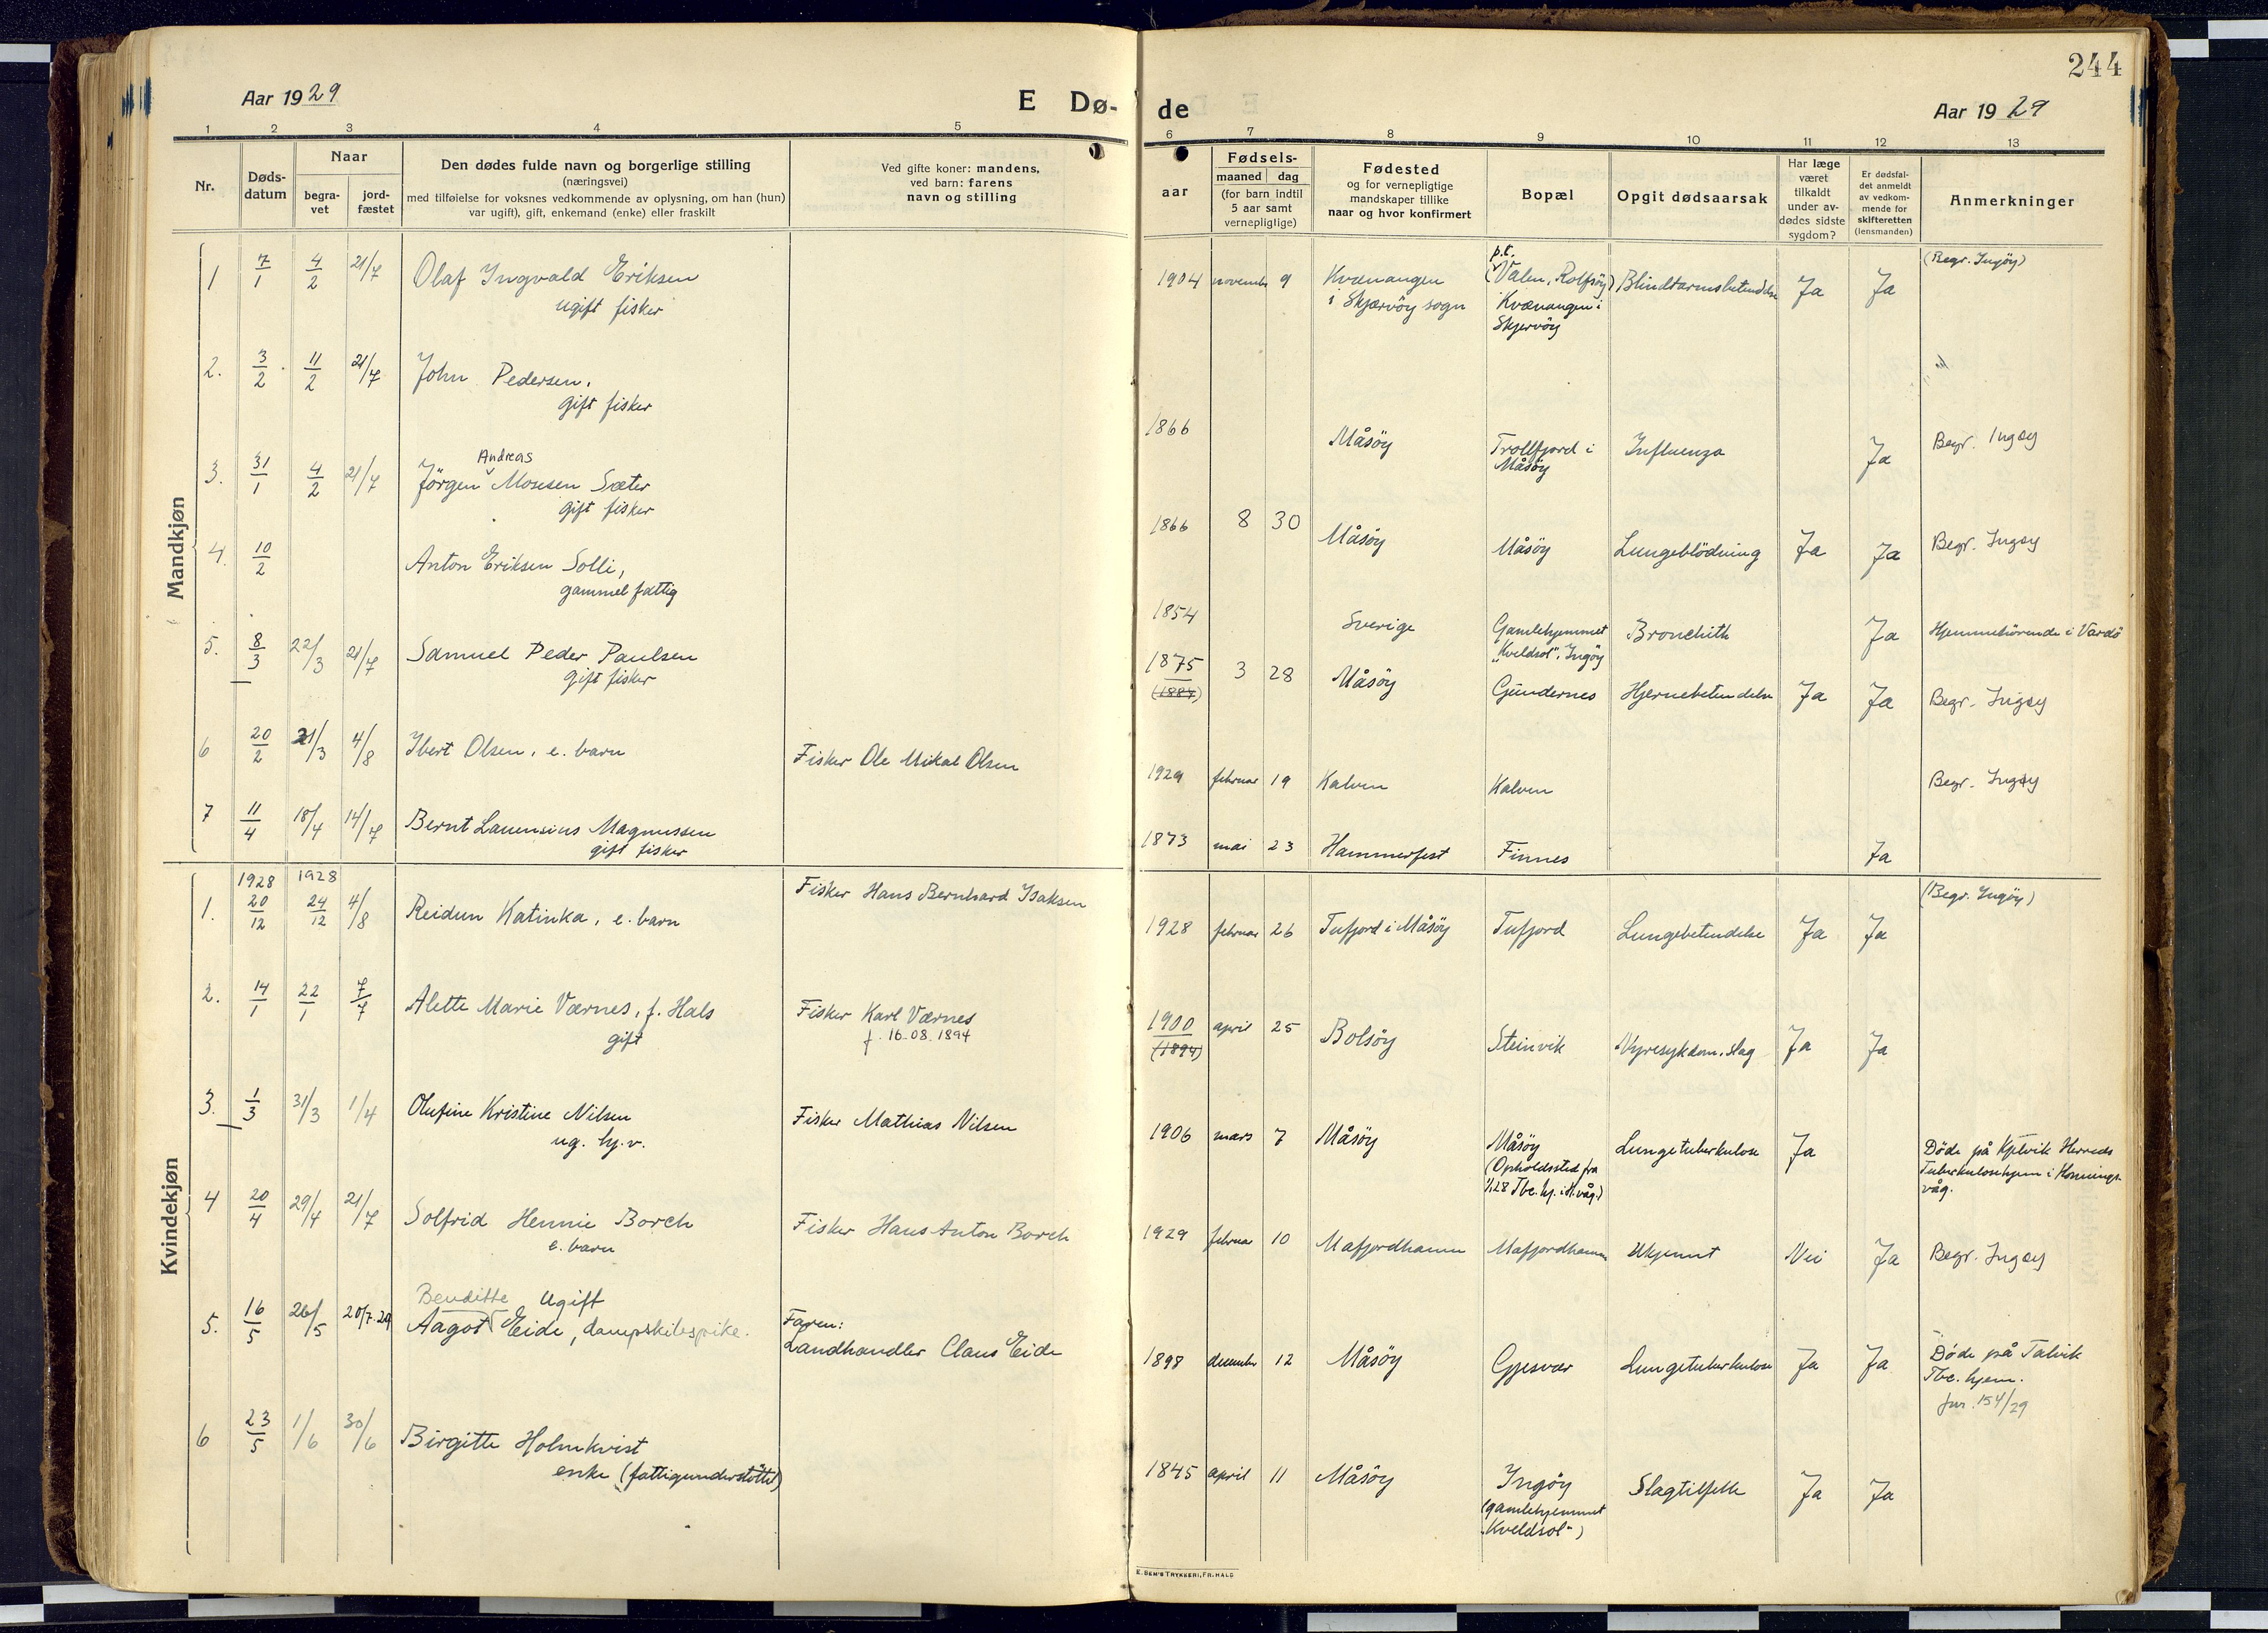 244
Aar 1929
E Dø-
de
Aar 1929
1 2 3 4 5
6 7 8 9 10 11 12 13
Nr.
Døds-
datum
Naar
begra-
vet
jord-
fæstet
Den dødes fulde navn og borgerlige stilling
(næringsvei)
med tilføielse for voksnes vedkommende av oplysning, om han (hun)
var ugift), gift, enkemand (enke) eller fraskilt
Ved gifte koner: mandens,
ved barn: farens
navn og stilling
aar
Fødsels-
maaned dag
(for barn indtil
5 aar samt
vernepligtige)
Fødested
og for vernepligtige
mandskaper tillike
naar og hvor konfirmert
Bopæl
Opgit dødsaarsak
Har læge
været
tilkaldt
under av-
dødes sidste
sygdom?
Er dødsfal-
det anmeldt
av vedkom-
mende for
skifteretten
(lensmanden)
Anmerkninger
Mandkjøn
1 7/1 4/2 21/7 Olaf Ingvald Eriksen
ugift fisker
1904 november 9 Kvænangen
i Skjærvöy sogn
p.t.
(Valen, Rolfsöy)
Kvænangen i
Skjervöy
Blindtarmsbetendelse Ja Ja (Begr. Ingöy)
2. 3/2 11/2 21/7 John Pedersen,
gift fisker
1866 Måsöy Trollfjord i
Måsöy
Influenza Ja Begr. Ingöy
3. 31/1 4/2 21/7 Andreas
Jörgen Mosesen Sæter
gift fisker
1866 8 30 Måsöy Måsöy Lungeblödning Ja Ja Begr. Ingöy
4. 10/2 Anton Eriksen Solli,
gammel fattig
1854 Sverige Gamlehjemmet
"Kveldsol", Ingöy
Bronchith Ja Hjemmehörende i Vardö
5. 8/3 22/3 21/7 Samuel Peder Paulsen
gift fisker
1875
(1884)
3 28 Måsöy Gundernes Hjernebetendelse Ja Ja Begr. Ingöy
6 20/2 21/3 4/8 Ibert Olsen, e. barn Fisker Ole Mikal Olsen
1929 februar 19 Kalven Kalven Begr. Ingöy
7 11/4 18/4 14/7 Bernt Laurensius Magnussen
gift fisker
1873 mai 23 Hammerfest Finnes Ja
Kvindekjøn
1928 1928
1. 20/12 24/12 4/8 Reidun Katinka, e. barn Fisker Hans Bernhard Isaksen
1928 februar 26 Tufjord i Måsöy Tufjord Lungebetendelse Ja Ja (Begr. Ingöy)
2. 14/1 22/1 7/7 Alette Marie Værnes, f. Hals
gift
Fisker Karl Værnes
f. 16.08.1894
1900
(1894)
april 25 Bolsöy Steinvik Nyresykdom, slag Ja Ja
3. 1/3 31/3 1/4 Olufine Kristine Nilsen
ug. hj.v.
Fisker Mathias Nilsen
1906 mars 7 Måsöy Måsöy
(Opholdssted fra
1/1 28 Tbc. hj. i H.våg.)
Lungetuberkulose Ja Döde på Kjelvik Herreds
Tuberkulosehjem i Honnings-
våg.
4 20/4 29/4 21/7 Solfrid Hennie Borch
e. barn
Fisker Hans Anton Borch
1929 februar 10 Mafjordhamn Mafjordhamn Ukjennt Nei Ja Begr. Ingöy
5. 16/5 26/5 20/7.29 Benditte Ugift
Aagot Eide, dampskibspike.
Faren:
Landhandler Claus Eide
1898 december 12 Måsöy Gjesvær Lungetuberkulose Ja Ja Döde på Talvik
Tbc. hjem.
Jnr. 154/29
6 23/5 1/6 30/6 Birgitte Holmkvist
enke (fattigunderstöttet)
1845 april 11 Måsöy Ingöy
(gamlehjemmet
"Kveldsol")
Slagtilfelle Ja Ja
E. SEM'S TRYKKERI, FR.HALD